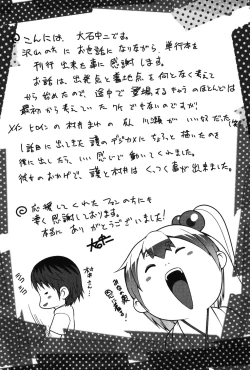 ◎こんにちは、大石中二です。
沢山の方にお世話になりながら単行本を
刊行出来た事に感謝します。
お話は、出発点と着地点を何となく考えて
から始めたので、途中で登場するキャラのほとんどは
最初から考えていたワケではないのですが
メインヒロインの村井まれの友人 川瀬が いい奴だな
1話目に出てきた護のデジカメにちょろっと描いたのを
後に出したら、いい感じで動いてくれました。
彼女のおかげで、護と村井はくっつく事が出来ました。
◎応援してくれたファンの方にも
凄く感謝しております。
本当にありがとうございました!
大石
村井さん…